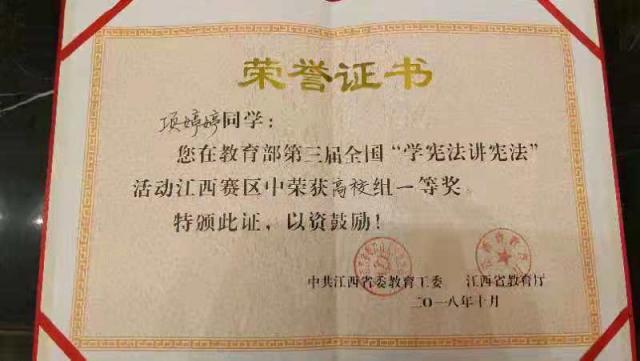 荣誉证书
项婷婷同学：
您在教育部第三届全国“学宪法讲宪法”
活动江西赛区中荣获高校组一等奖。
特颁此证，以资鼓励！
中共江西省委教育工委 江西省教育厅
二〇一八年十月